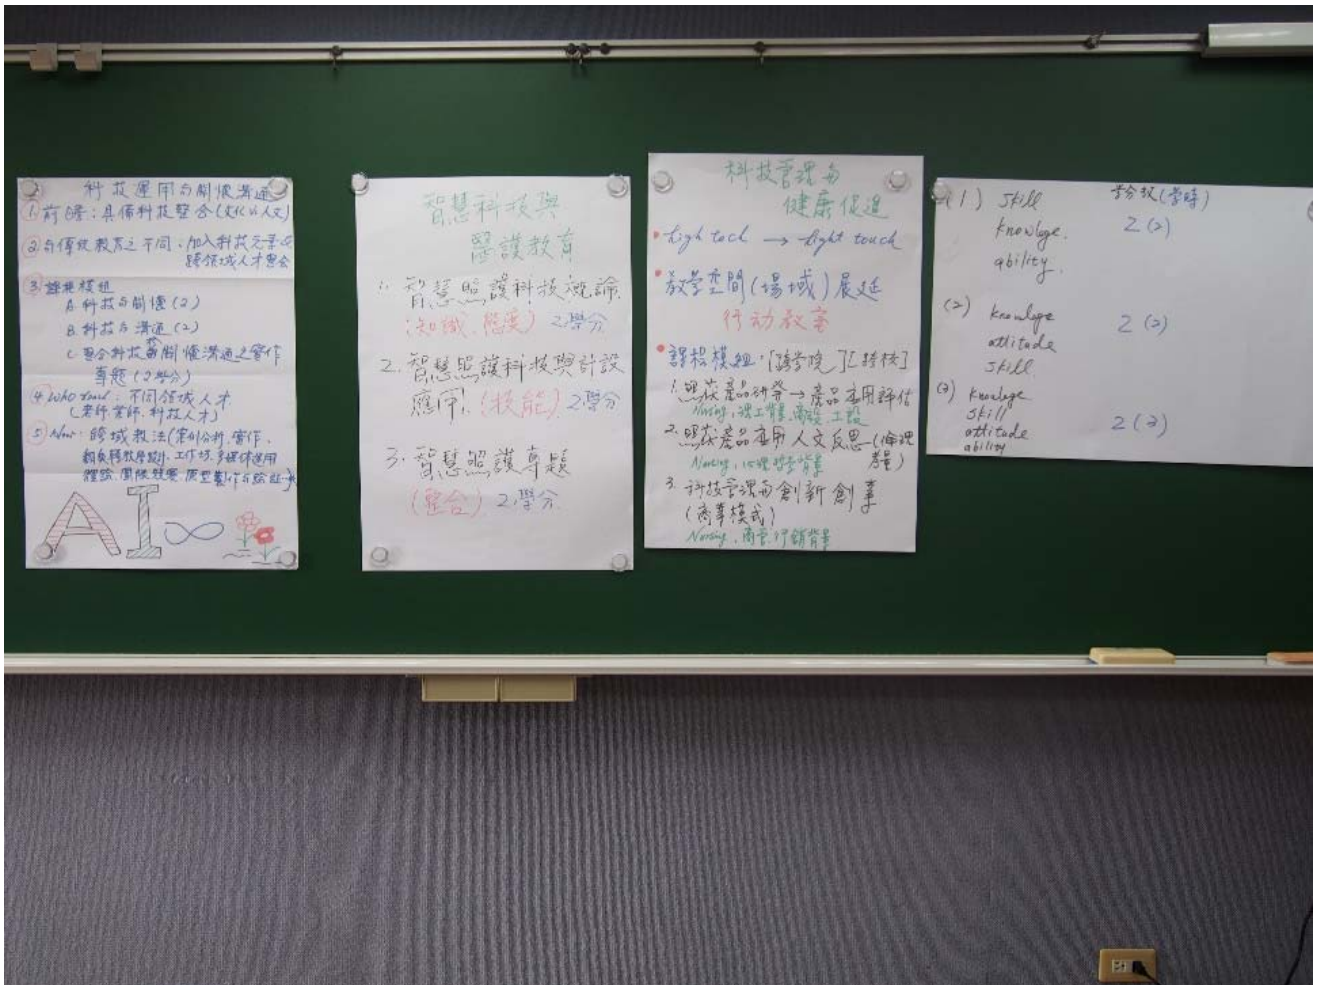 科技運用与關懷溝通
1. 前瞻:具備科技整合(文化vs人文)
2 与傳統教育之不同:加入科技元素&
跨領域人才整合
3 課程模組
A. 科技与關懷(2)
B. 科技与溝通(2)
C. 整合科技 關懷溝通之實作
專題(2學分)
4 Who teach: 不同領域人才
(老師業師、科技人才)
5 How: 跨域教法(案例分析、實作、
翻轉教學設計、工作坊、多媒体運用
體驗、團隊競賽、原型製作与驗証
AI∞
智慧科技與
醫護教育
1. 智慧照護科技概論
(知識、態度) 2學分
2. 智慧照護科技與計設
應用. (技能) 2學分
3. 智慧照護專題
(整合) 2學分
科技管理与
健康促進
high tech → hight touch
教學空間(場域)展延
行动教室
課程模組:[跨学院][跨校]
1. 照護產品研發→產品应用評估
Nursing, 理工背景, 商設, 工設
2. 照護產品应用人文反思(倫理
考量)
Nursing, 心理哲学背景
3. 科技管理与創新創業
(商業模式)
Nursing, 商管, 行銷背景
(1) skill 学分放(学時)
knowlege. 2(2)
ability.
(2) knowlege 2(2)
attitude
skill
(3) knowlege
skill
attitude 2(2)
ability